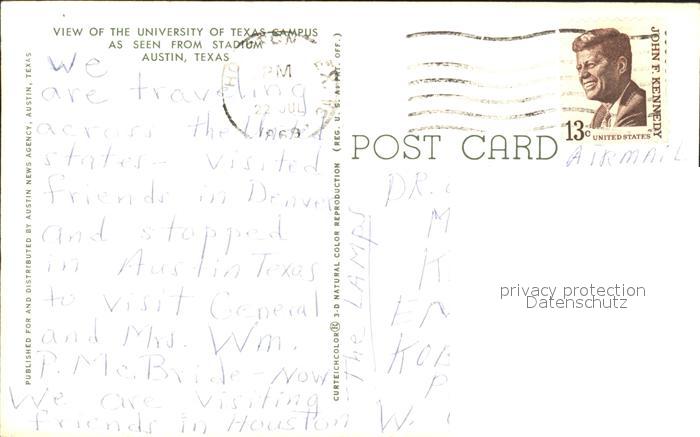 VIEW OF THE UNIVERSITY OF TEXAS CAMPUS
AS SEEN FROM STADIUM
AUSTIN, TEXAS
We
are traveling
across the United
states - visited
friends in Denver
and stopped
in Austin Texas
to visit General
and Mrs. Wm.
P. McBride - Now
We are visiting
friends in Houston
PUBLISHED FOR AND DISTRIBUTED BY AUSTIN NEWS AGENCY, AUSTIN, TEXAS
CURTEICHCOLOR 3-D NATURAL COLOR REPRODUCTION (REG. U. S. A. PAT. OFF.)
The LAMPS
PM
22 JUL
POST CARD
JOHN F. KENNEDY
13c UNITED STATES
AIRMAIL
DR.
M
K
EN
KOB
P
W.
privacy protection
Datenschutz